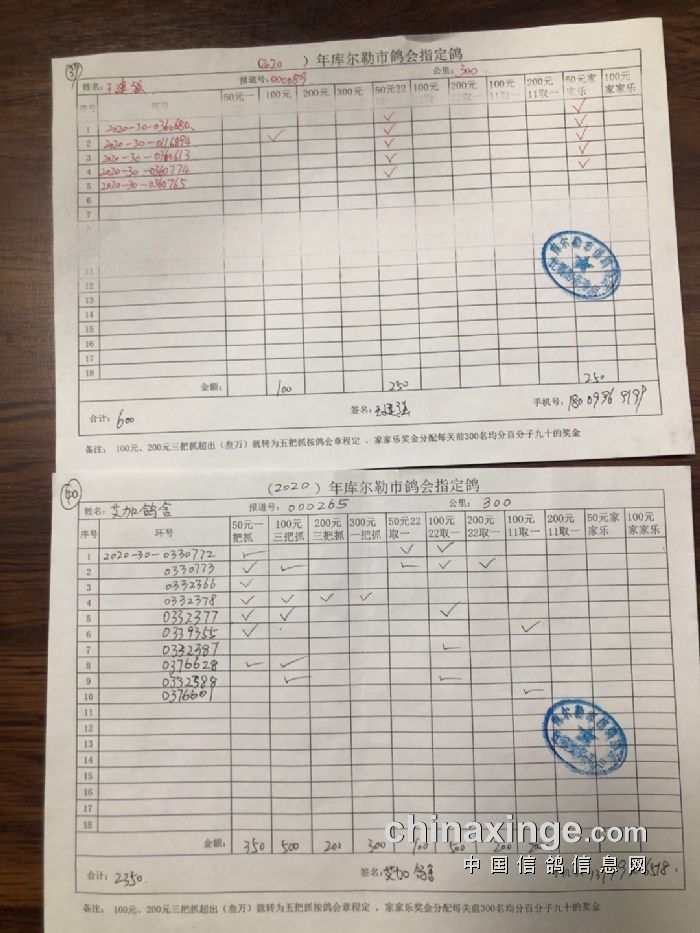 37
(2020 ) 年库尔勒市鸽会指定鸽
姓名: 报道号:000089 公里:300
序号 环号 50元一 100元 200元 300元 50元22 100元 200元 100元 200元 50元家 100元
取一 11取一 11取一 家乐 家家乐
1 2020-30-0360680
2 2020-30-0116894
3 2020-30-0360613
4 2020-30-0360774
5 2020-30-0360765
6
7
11
12
13
14
15
16
17
18
金额: 100 250 250
合计: 600 签名: 手机号:
备注: 100元、200元三把抓超出(叁万)就转为五把抓按鸽会章程定,家家乐奖金分配每关前300名均分百分子九十的奖金
40
(2020 ) 年库尔勒市鸽会指定鸽
姓名: 艾加鸽舍 报道号: 000265 公里: 300
序号 环号 50元一 100元 200元 300元 50元22 100元 200元 100元 200元 50元家 100元
把抓 三把抓 三把抓 一把抓 取一 22取一 22取一 11取一 11取一 家乐 家家乐
1 2020-30-0330772
2 0330773
3 0332366
4 0332378
5 0332377
6 0339355
7 0332387
8 0376628
9 0332388
10 0376601
11
12
13
14
15
16
17
18
金额: 350 500 200 300 100 500 200
chinaxinge.com
中国信鸽信息网
合计: 2350. 签名: 艾加鸽舍
备注: 100元、200元三把抓超出(叁万)就转为五把抓按鸽会章程定,家家乐奖金分配每关前300名均分百分子九十的奖金